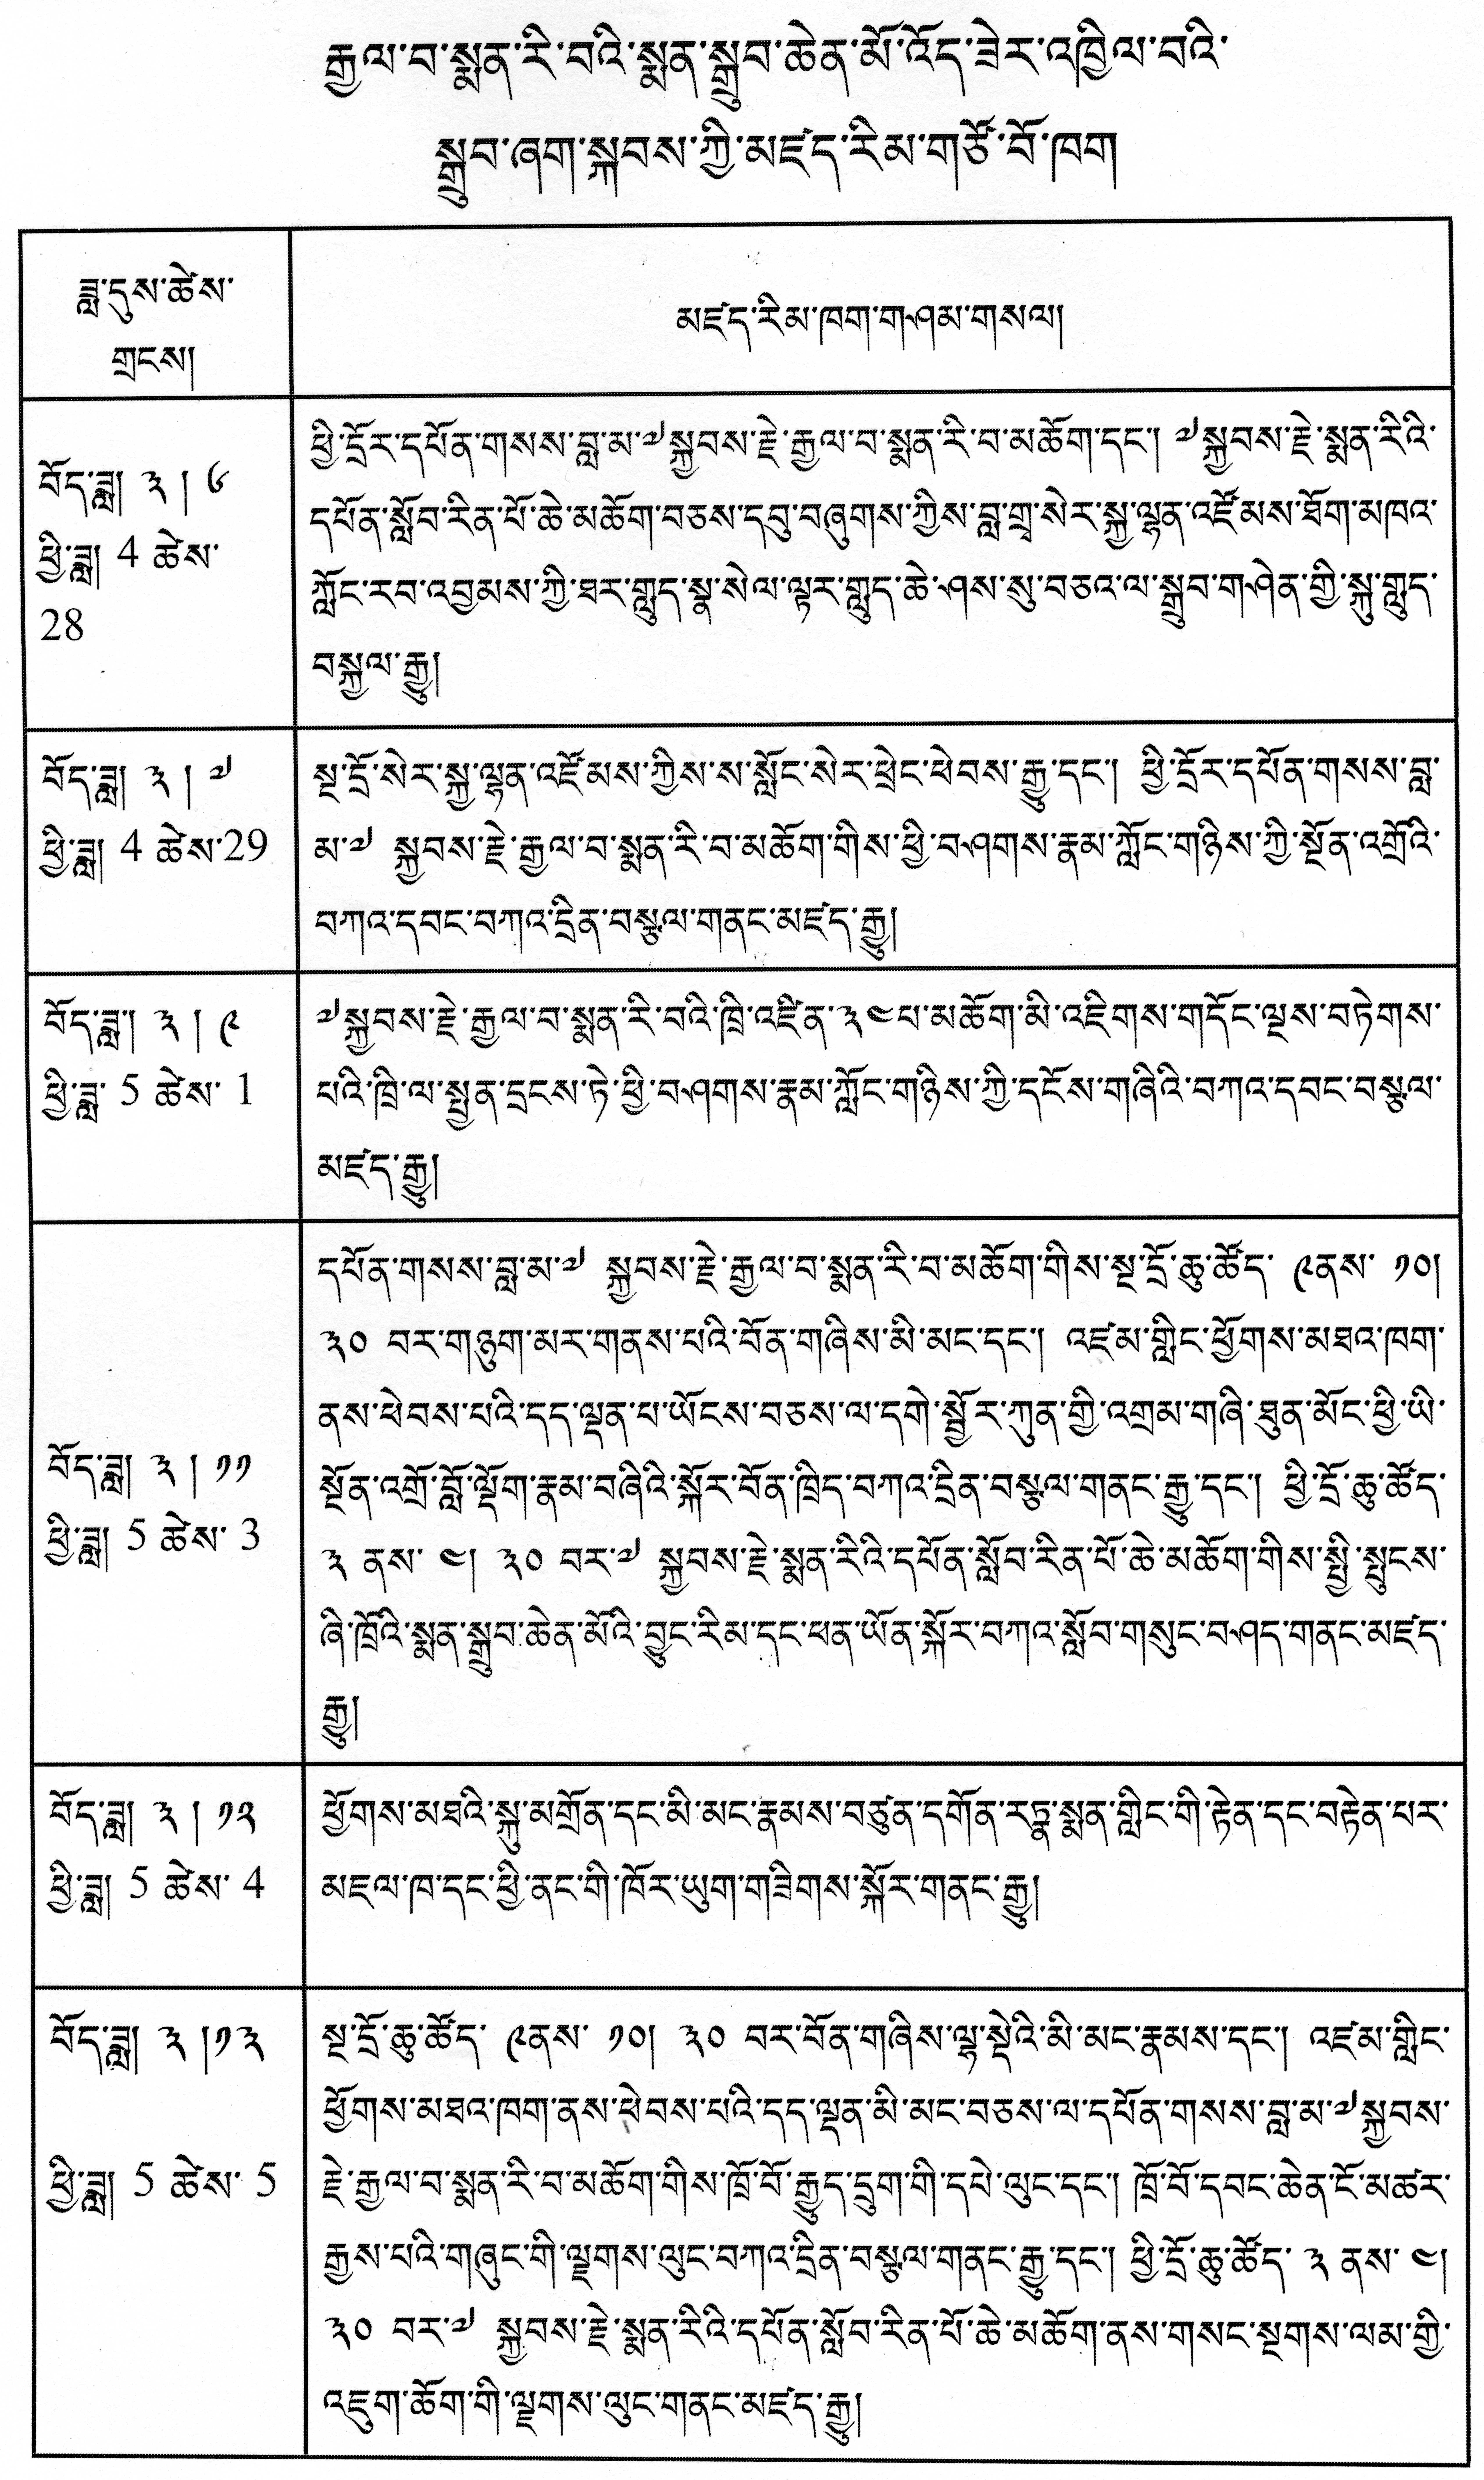 རྒྱལ་བ་སྨན་རི་བའི་སྨན་སྒྲུབ་ཆེན་མོ་འོད་ཟེར་འཁྱིལ་བའི་
སྒྲུབ་ཞག་སྐབས་ཀྱི་མཛད་རིམ་གཙོ་བོ་ཁག
ཟླ་དུས་ཚེས་
གྲངས།
མཛད་རིམ་ཁག་གཤམ་གསལ།
བོད་ཟླ། ༣ ། ༦
ཕྱི་ཟླ། 4 ཚེས་
28
ཕྱི་དྲོར་དཔོན་གསས་བླ་མ་༧སྐྱབས་རྗེ་རྒྱལ་བ་སྨན་རི་བ་མཆོག་དང་། ༧སྐྱབས་རྗེ་སྨན་རིའི་
དཔོན་སློབ་རིན་པོ་ཆེ་མཆོག་བཅས་དབུ་བཞུགས་ཀྱིས་བླ་གྲྭ་སེར་སྐྱ་ལྷན་འཛོམས་ཐོག་མཁའ་
ཀློང་རབ་འབྱམས་ཀྱི་ཐར་གླུད་སྣ་སེལ་ལྟར་གླུད་ཆེ་ཤས་སུ་བཅའ་ལ་སྒྲུབ་གཤེན་གྱི་སྐུ་གླུད་
བསྐྱལ་རྒྱུ།
བོད་ཟླ། ༣ ། ༧
ཕྱི་ཟླ། 4 ཚེས་29
སྔ་དྲོ་སེར་སྐྱ་ལྷན་འཛོམས་ཀྱིས་ས་སློང་སེར་ཕྲེང་ཕེབས་རྒྱུ་དང་། ཕྱི་དྲོར་དཔོན་གསས་བླ་
མ་༧ སྐྱབས་རྗེ་རྒྱལ་བ་སྨན་རི་བ་མཆོག་གིས་ཕྱི་བཤགས་རྣམ་ཀློང་གཉིས་ཀྱི་སྔོན་འགྲོའི་
བཀའ་དབང་བཀའ་དྲིན་བསྩལ་གནང་མཛད་རྒྱུ།
བོད་ཟླ། ༣ ། ༩
ཕྱི་ཟླ་ 5 ཚེས་ 1
༧སྐྱབས་རྗེ་རྒྱལ་བ་སྨན་རི་བའི་ཁྲི་འཛིན་༣༤པ་མཆོག་མི་འཇིགས་གདོང་ལྔས་བཏེགས་
པའི་ཁྲི་ལ་སྤྱན་དྲངས་ཏེ་ཕྱི་བཤགས་རྣམ་ཀློང་གཉིས་ཀྱི་དངོས་གཞིའི་བཀའ་དབང་བསྩལ་
མཛད་རྒྱུ།
བོད་ཟླ། ༣ ། ༡༡
ཕྱི་ཟླ། 5 ཚེས་ 3
དཔོན་གསས་བླ་མ་༧ སྐྱབས་རྗེ་རྒྱལ་བ་སྨན་རི་བ་མཆོག་གིས་སྔ་དྲོ་ཆུ་ཚོད་ ༩ནས་ ༡༠།
༣༠ བར་གཉུག་མར་གནས་པའི་བོན་གཞིས་མི་མང་དང་། འཛམ་གླིང་ཕྱོགས་མཐའ་ཁག་
ནས་ཕེབས་པའི་དད་ལྡན་པ་ཡོངས་བཅས་ལ་དགེ་སྦྱོར་ཀུན་གྱི་འགྲམ་གཞི་ཐུན་མོང་ཕྱི་ཡི་
སྔོན་འགྲོ་བློ་ལྡོག་རྣམ་བཞིའི་སྐོར་བོན་ཁྲིད་བཀའ་དྲིན་བསྩལ་གནང་རྒྱུ་དང་། ཕྱི་དྲོ་ཆུ་ཚོད་
༣ ནས་ ༤། ༣༠ བར་༧ སྐྱབས་རྗེ་སྨན་རིའི་དཔོན་སློབ་རིན་པོ་ཆེ་མཆོག་གིས་སྤྱི་སྤུངས་
ཞི་ཁྲོའི་སྨན་སྒྲུབ་ཆེན་མོའི་བྱུང་རིམ་དང་ཕན་ཡོན་སྐོར་བཀའ་སློབ་གསུང་བཤད་གནང་མཛད་
རྒྱུ།
བོད་ཟླ། ༣ ། ༡༢
ཕྱི་ཟླ། 5 ཚེས་ 4
ཕྱོགས་མཐའི་སྐུ་མགྲོན་དང་མི་མང་རྣམས་བཙུན་དགོན་རཏྣ་སྨན་གླིང་གི་རྟེན་དང་བརྟེན་པར་
མཇལ་ཁ་དང་ཕྱི་ནང་གི་ཁོར་ཡུག་གཟིགས་སྐོར་གནང་རྒྱུ།
བོད་ཟླ། ༣ །༡༣
ཕྱི་ཟླ། 5 ཚེས་ 5
སྔ་དྲོ་ཆུ་ཚོད་ ༩ནས་ ༡༠། ༣༠ བར་བོན་གཞིས་ལྷ་སྡེའི་མི་མང་རྣམས་དང་། འཛམ་གླིང་
ཕྱོགས་མཐའ་ཁག་ནས་ཕེབས་པའི་དད་ལྡན་མི་མང་བཅས་ལ་དཔོན་གསས་བླ་མ་༧སྐྱབས་
རྗེ་རྒྱལ་བ་སྨན་རི་བ་མཆོག་གིས་ཁྲོ་བོ་རྒྱུད་དྲུག་གི་དཔེ་ལུང་དང་། ཁྲོ་བོ་དབང་ཆེན་ངོ་མཚར་
རྒྱས་པའི་གཞུང་གི་ལྗགས་ལུང་བཀའ་དྲིན་བསྩལ་གནང་རྒྱུ་དང་། ཕྱི་དྲོ་ཆུ་ཚོད་ ༣ ནས་ ༤།
༣༠ བར་༧ སྐྱབས་རྗེ་སྨན་རིའི་དཔོན་སློབ་རིན་པོ་ཆེ་མཆོག་ནས་གསང་སྔགས་ལམ་གྱི་
འཇུག་ཆོག་གི་ལྗགས་ལུང་གནང་མཛད་རྒྱུ།